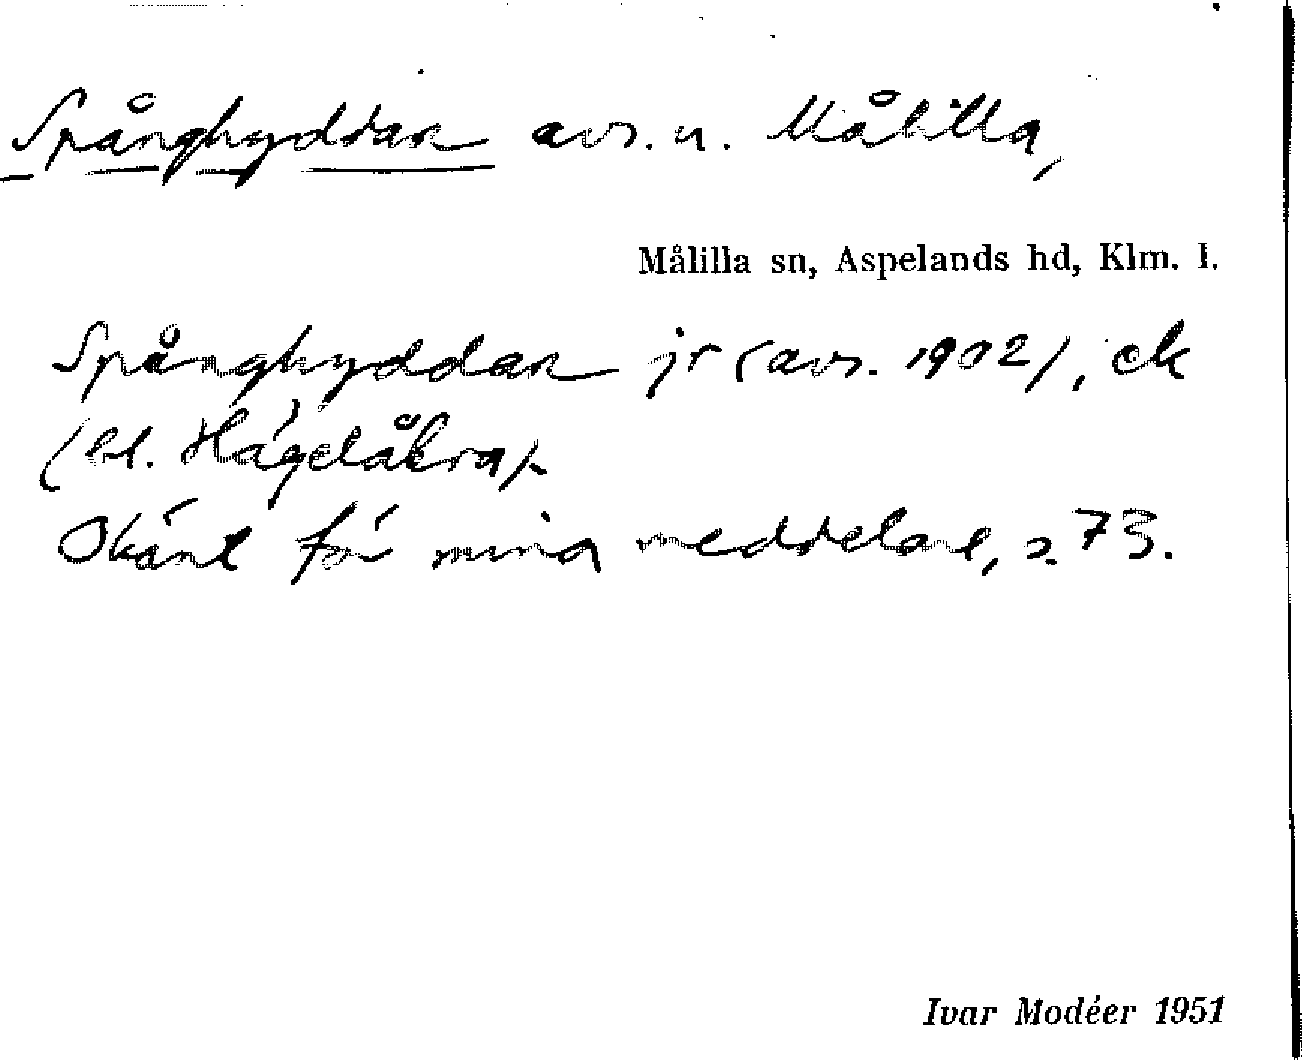 Spånghyddan avs. u. Målilla,
Målilla sn, Aspelands hd, Klm. l.
Spånghyddan jr (avs. 1902), ek
(bl. Hagelåkra).
Okänt för mina meddelare, s. 73.
Ivar Modéer 1951